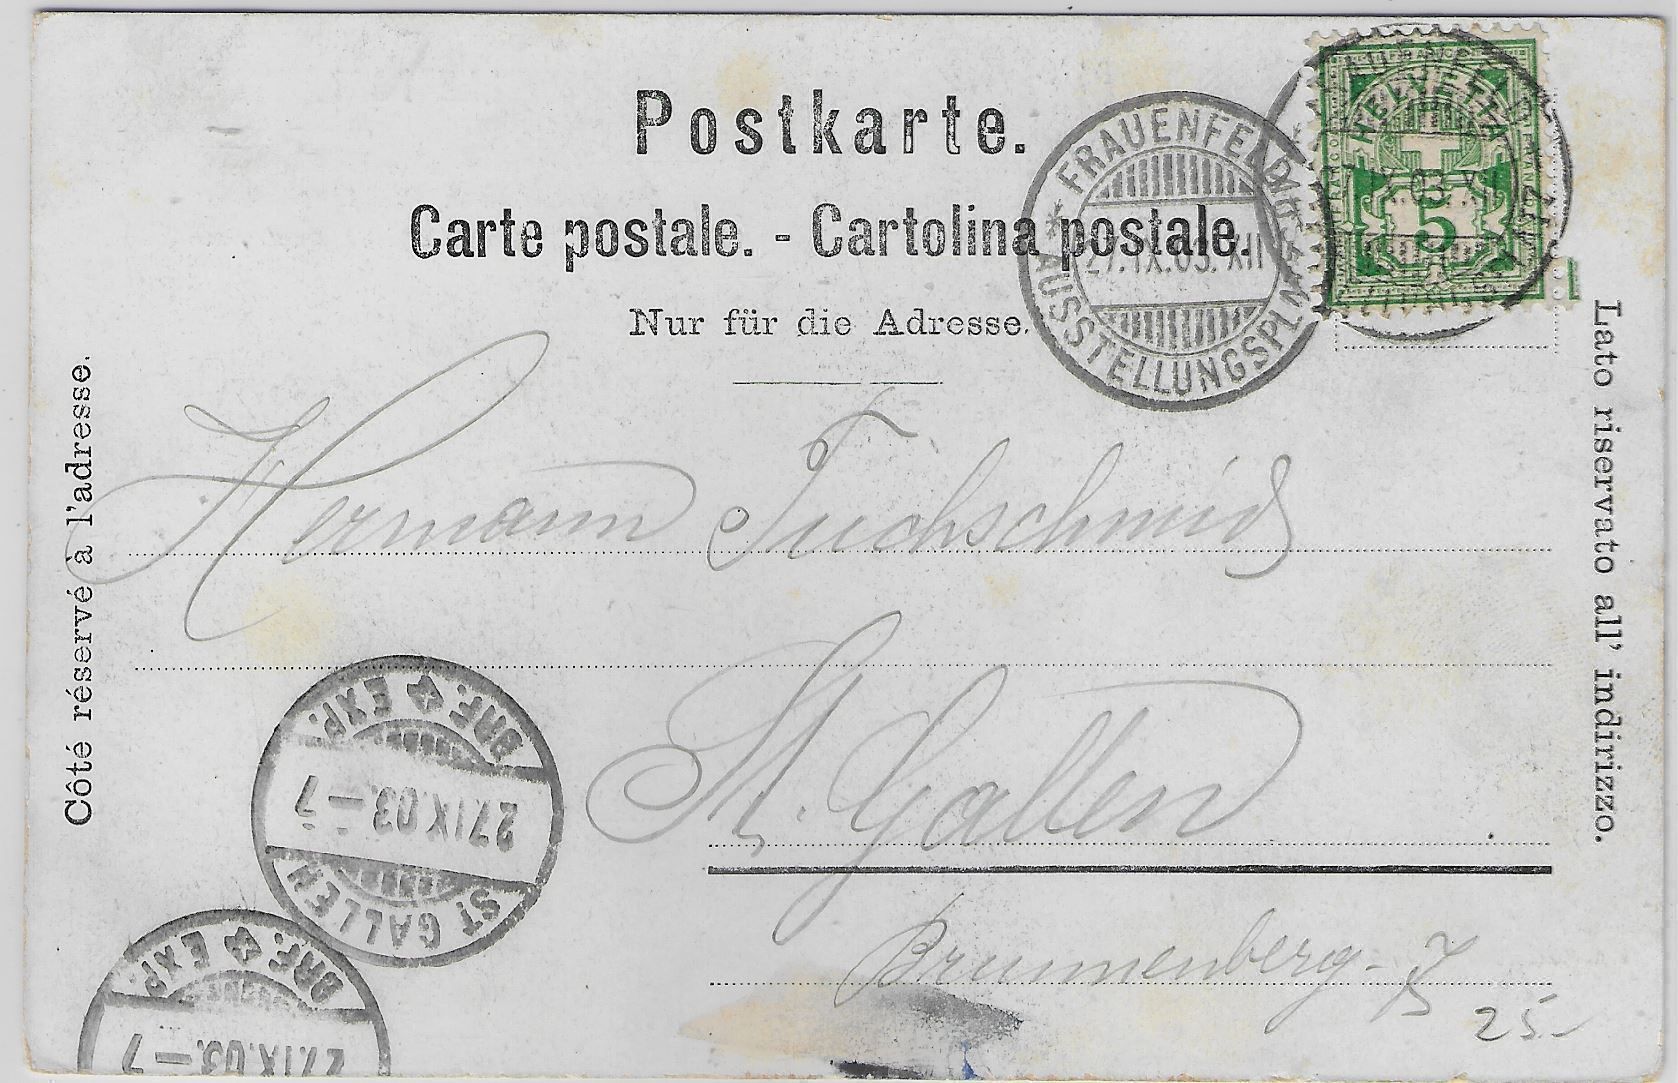 Postkarte.
Carte postale. - Cartolina postale.
Nur für die Adresse.
Côté réservé à l'adresse.
Lato riservato all' indirizzo.
FRAUENFELD
27.IX.03. XII
* AUSSTELLUNGSPL.
HELVETIA
FRANCO
5
Hermann Tuchschmid
St. Gallen
Brunnenberg-
25-
BRF. EXP.
27.IX.03.-7
ST GALLEN
BRF. EXP.
27.IX.03.-7